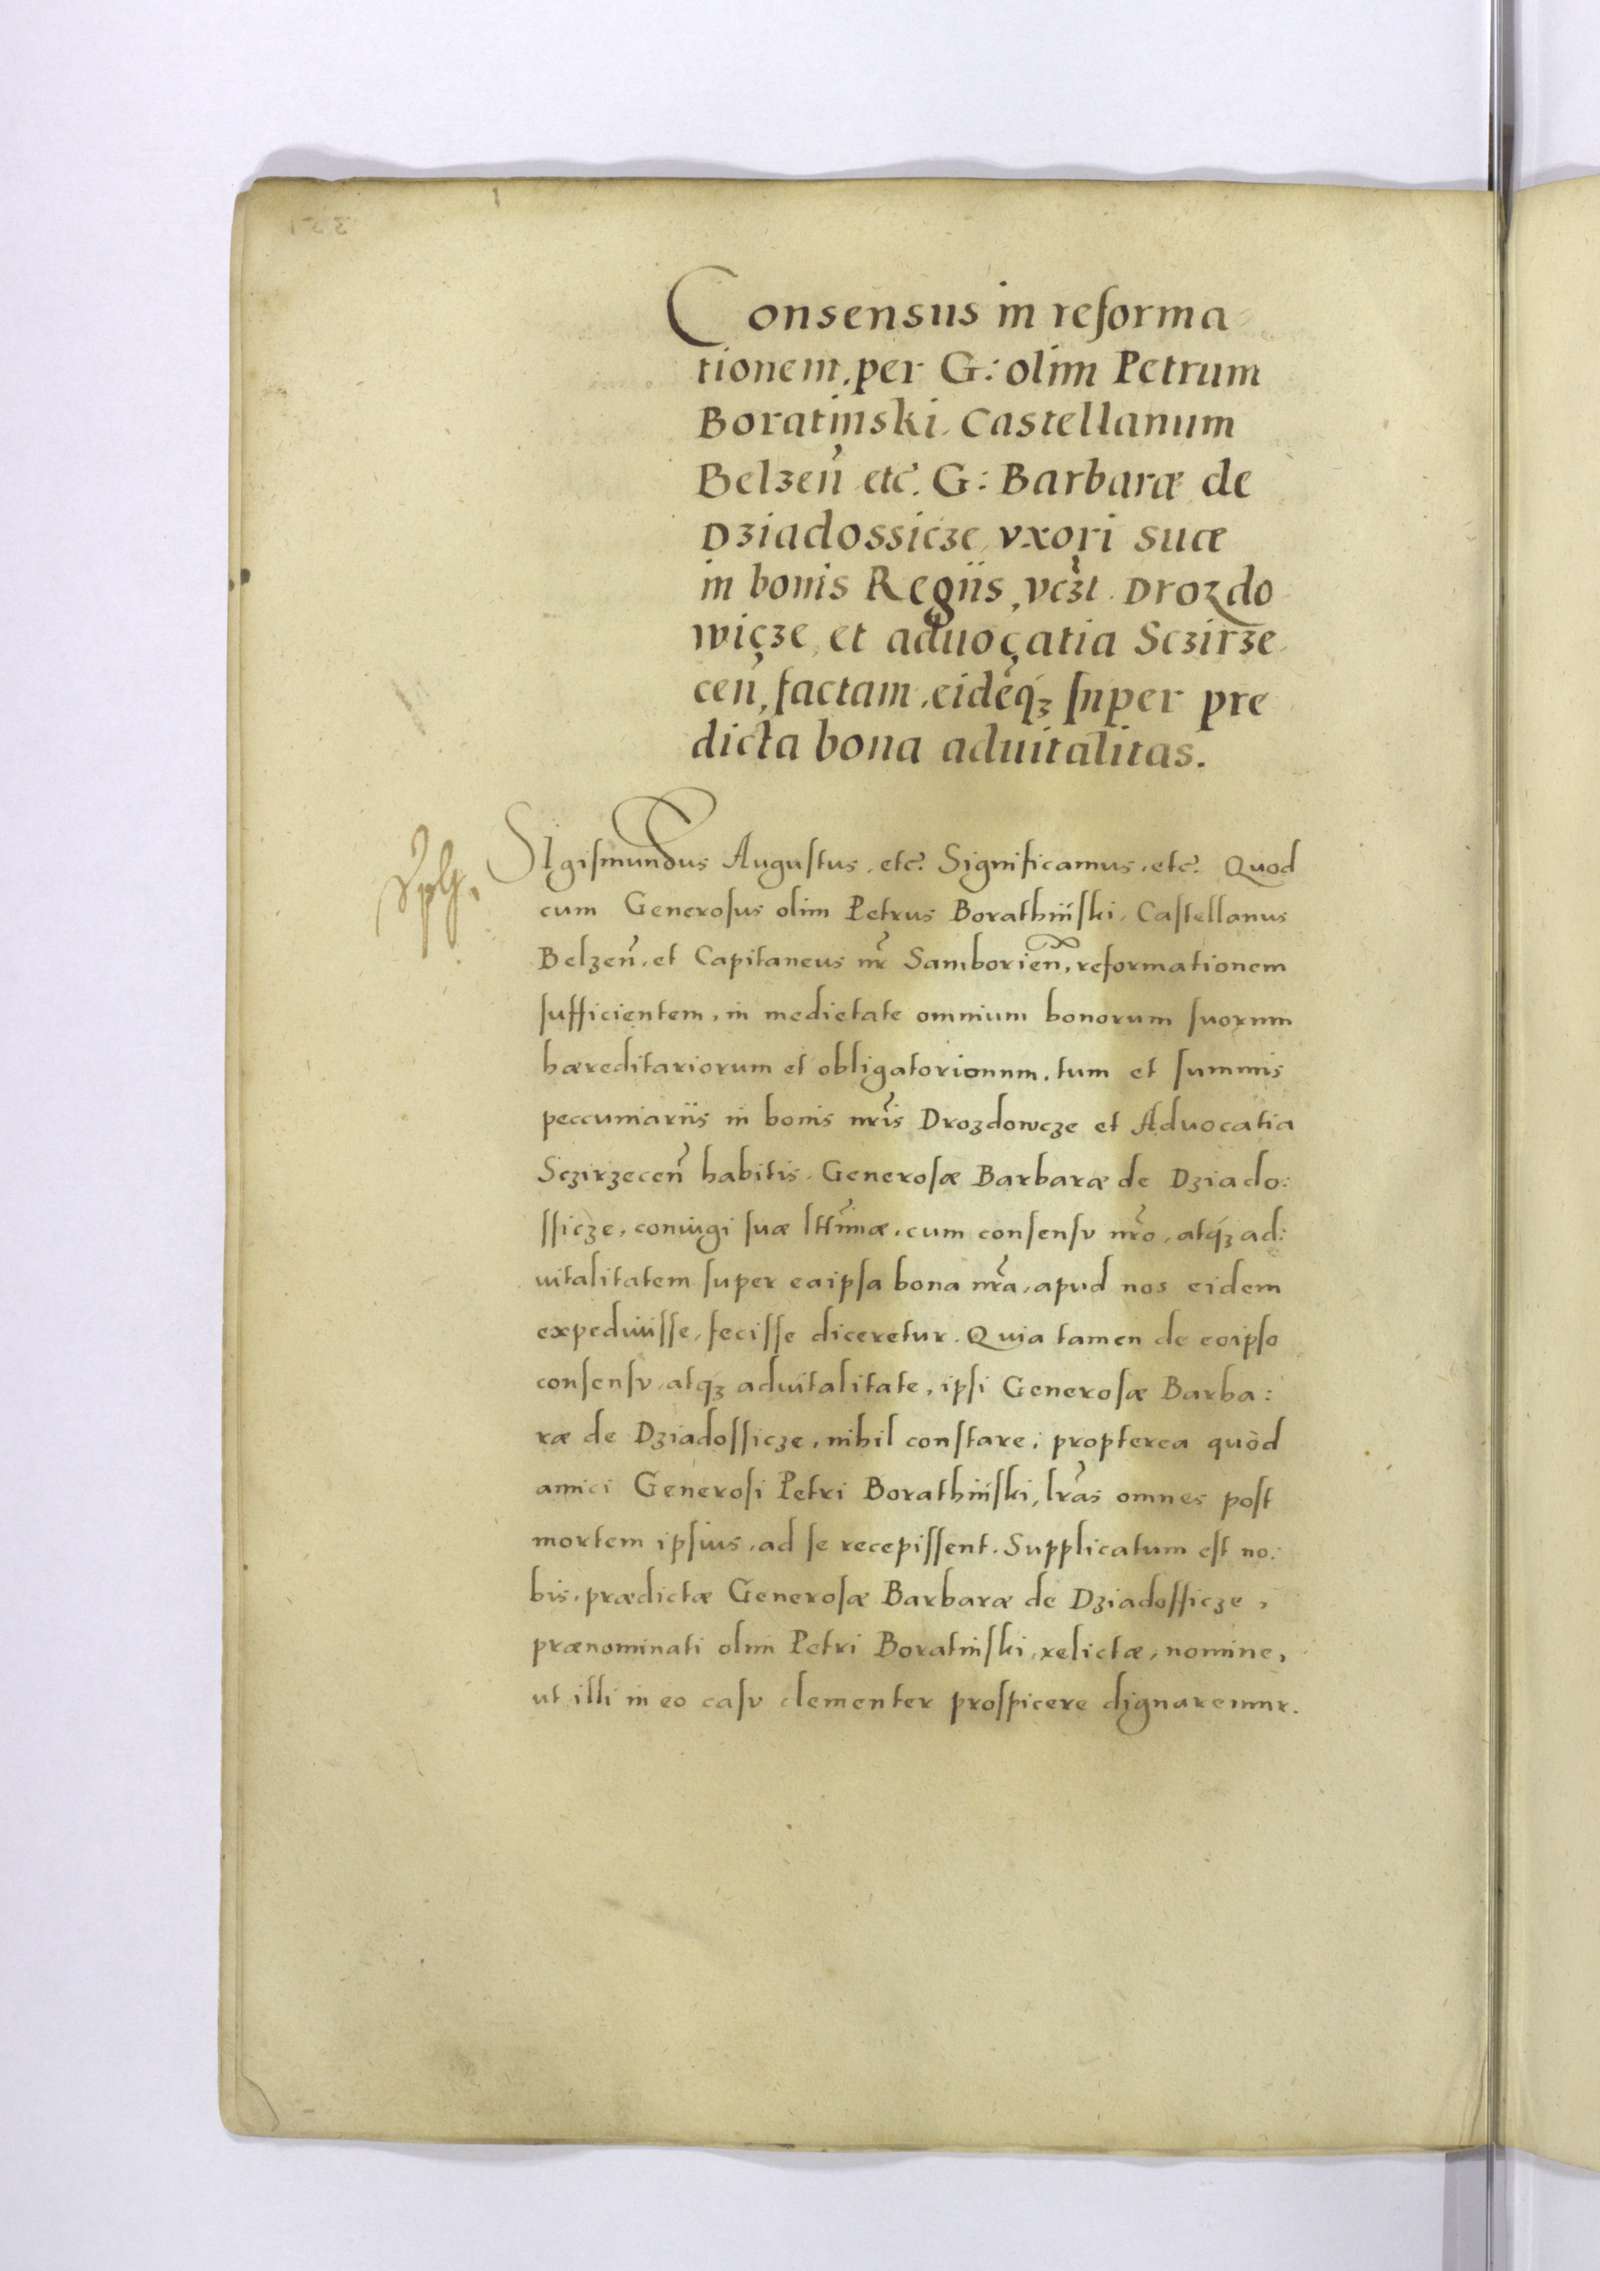 Consensus in reforma
tionem, per G: olim Petrum
Boratinski, Castellanum
Belzen̄ etc̄. G: Barbaræ de
Dziadossicze, vxori suæ
in bonis Regiis, vczt. Drozdo
wicze, et aduocatia Sczirze
cen̄, factam, eidēq₃ super pre
dicta bona aduitalitas.
SIgismundus Augustus, etc̄. Significamus, etc̄. Quod
cum Generosus olim Petrus Borathinski, Castellanus
Belzen̄, et Capitaneus nr̄ Samborien̄, reformationem
sufficientem, in medietate omnium bonorum suorum
hæreditariorum et obligatoriorum, tum et summis
peccuniariis in bonis nr̄is Drozdowcze et Aduocatia
Sczirzecen̄ habitis, Generosæ Barbaræ de Dziado:
ssicze, coniugi suæ ltt̄imæ, cum consensv nr̄o, atq₃ ad:
uitalitatem super eaipsa bona nr̄a, apud nos eidem
expediuisse, fecisse diceretur. Quia tamen de eoipso
consensv, atq₃ aduitalitate, ipsi Generosæ Barba:
ræ de Dziadossicze, nihil constare, propterea quòd
amici Generosi Petri Borathinski, lr̄as omnes post
mortem ipsius, ad se recepissent. Supplicatum est no:
bis, prædictæ Generosæ Barbaræ de Dziadossicze,
prænominati olim Petri Boratinski, relictæ, nomine,
ut illi in eo casv clementer prospicere dignaremur.